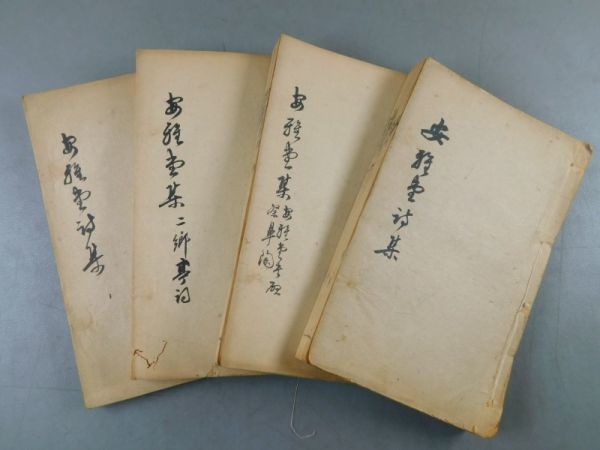 安雅堂詩集
安雅堂集
安雅堂書啟
祭皋陶
安雅堂集 二鄉亭詞
安雅堂詩集